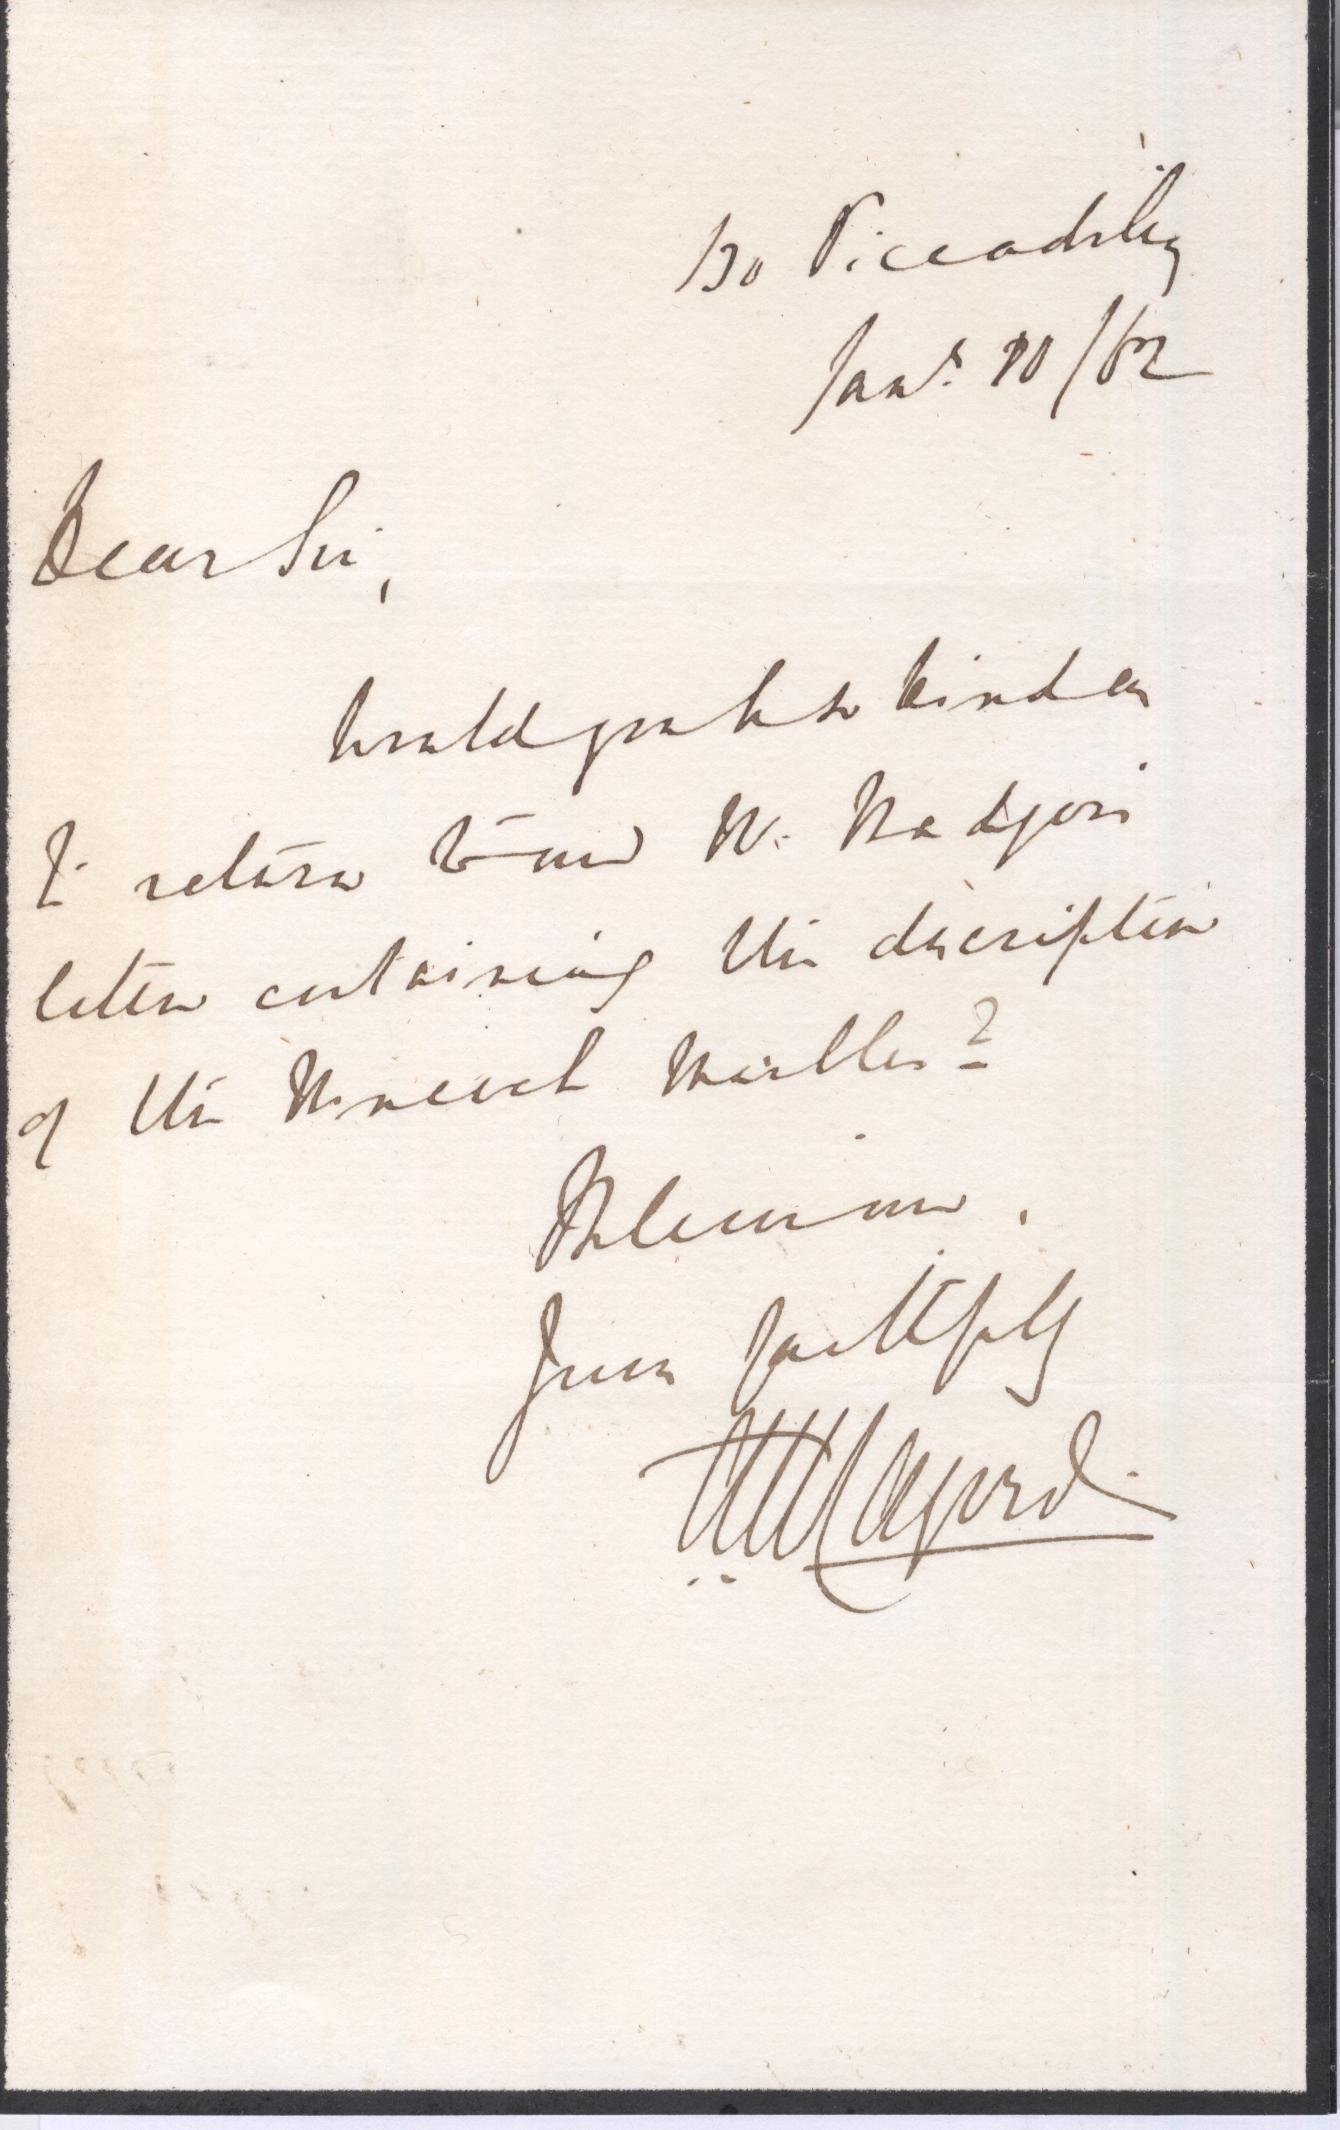 130 Piccadilly
Jany. 10/62
Dear Sir,
Would you be so kind as
to return to me Mr.
letter containing the description
of the Nineveh Marbles?
Believe me,
Yours faithfully
AHLayard